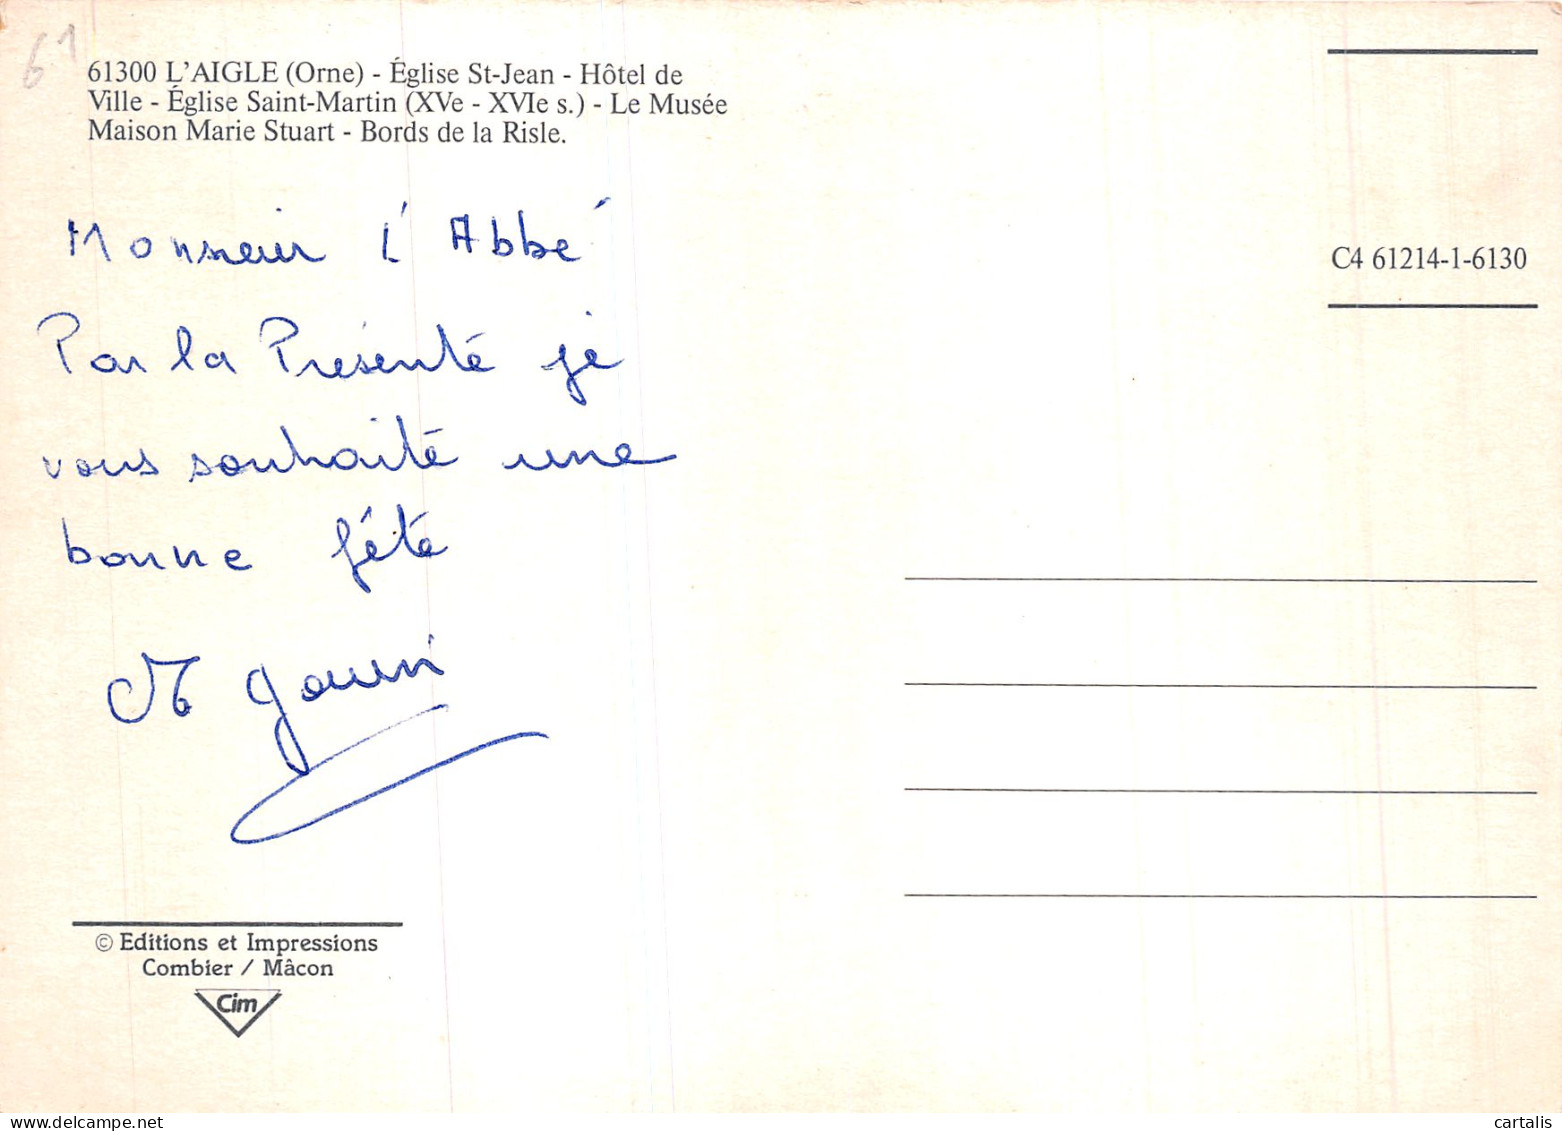 61
61300 L'AIGLE (Orne) - Église St-Jean - Hôtel de
Ville - Église Saint-Martin (XVe - XVIe s.) - Le Musée
Maison Marie Stuart - Bords de la Risle.
Monsieur l'Abbé
Par la Présente je
vous souhaite une
bonne fête
M
C4 61214-1-6130
© Editions et Impressions
Combier / Mâcon
Cim
delcampe.net
cartalis